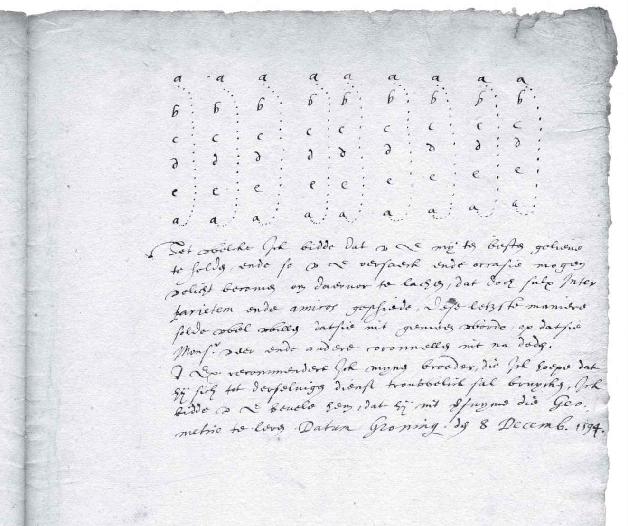 a a a a a a a a a
b b b b b b b b b
c c c c c c c c c
d d d d d d d d d
e e e e e e e e e
a a a a a a a a a
Het welcke Ick bidde dat U E my ten besten gelieve
te holden ende so U E oorsaeck ende occasie mogen
om daervoer te lachen, dat doch sulx Inter
parietem ende amicos geschiede. Dese letzste maniere
solde wel willen datsie nit gemeen worde op datsie
Monsr veer ende andere coronnellen nit na doen.
U E recommendere Ick mynen broeder, die Ick hoepe dat
hij sich tot derselvigen dienst trouwelick sal bruycken, Ick
bidde U E bevele hem, dat hij nit versuyme die Geo-
metrie te leren Datum Groning. den 8 Decemb. 1594.